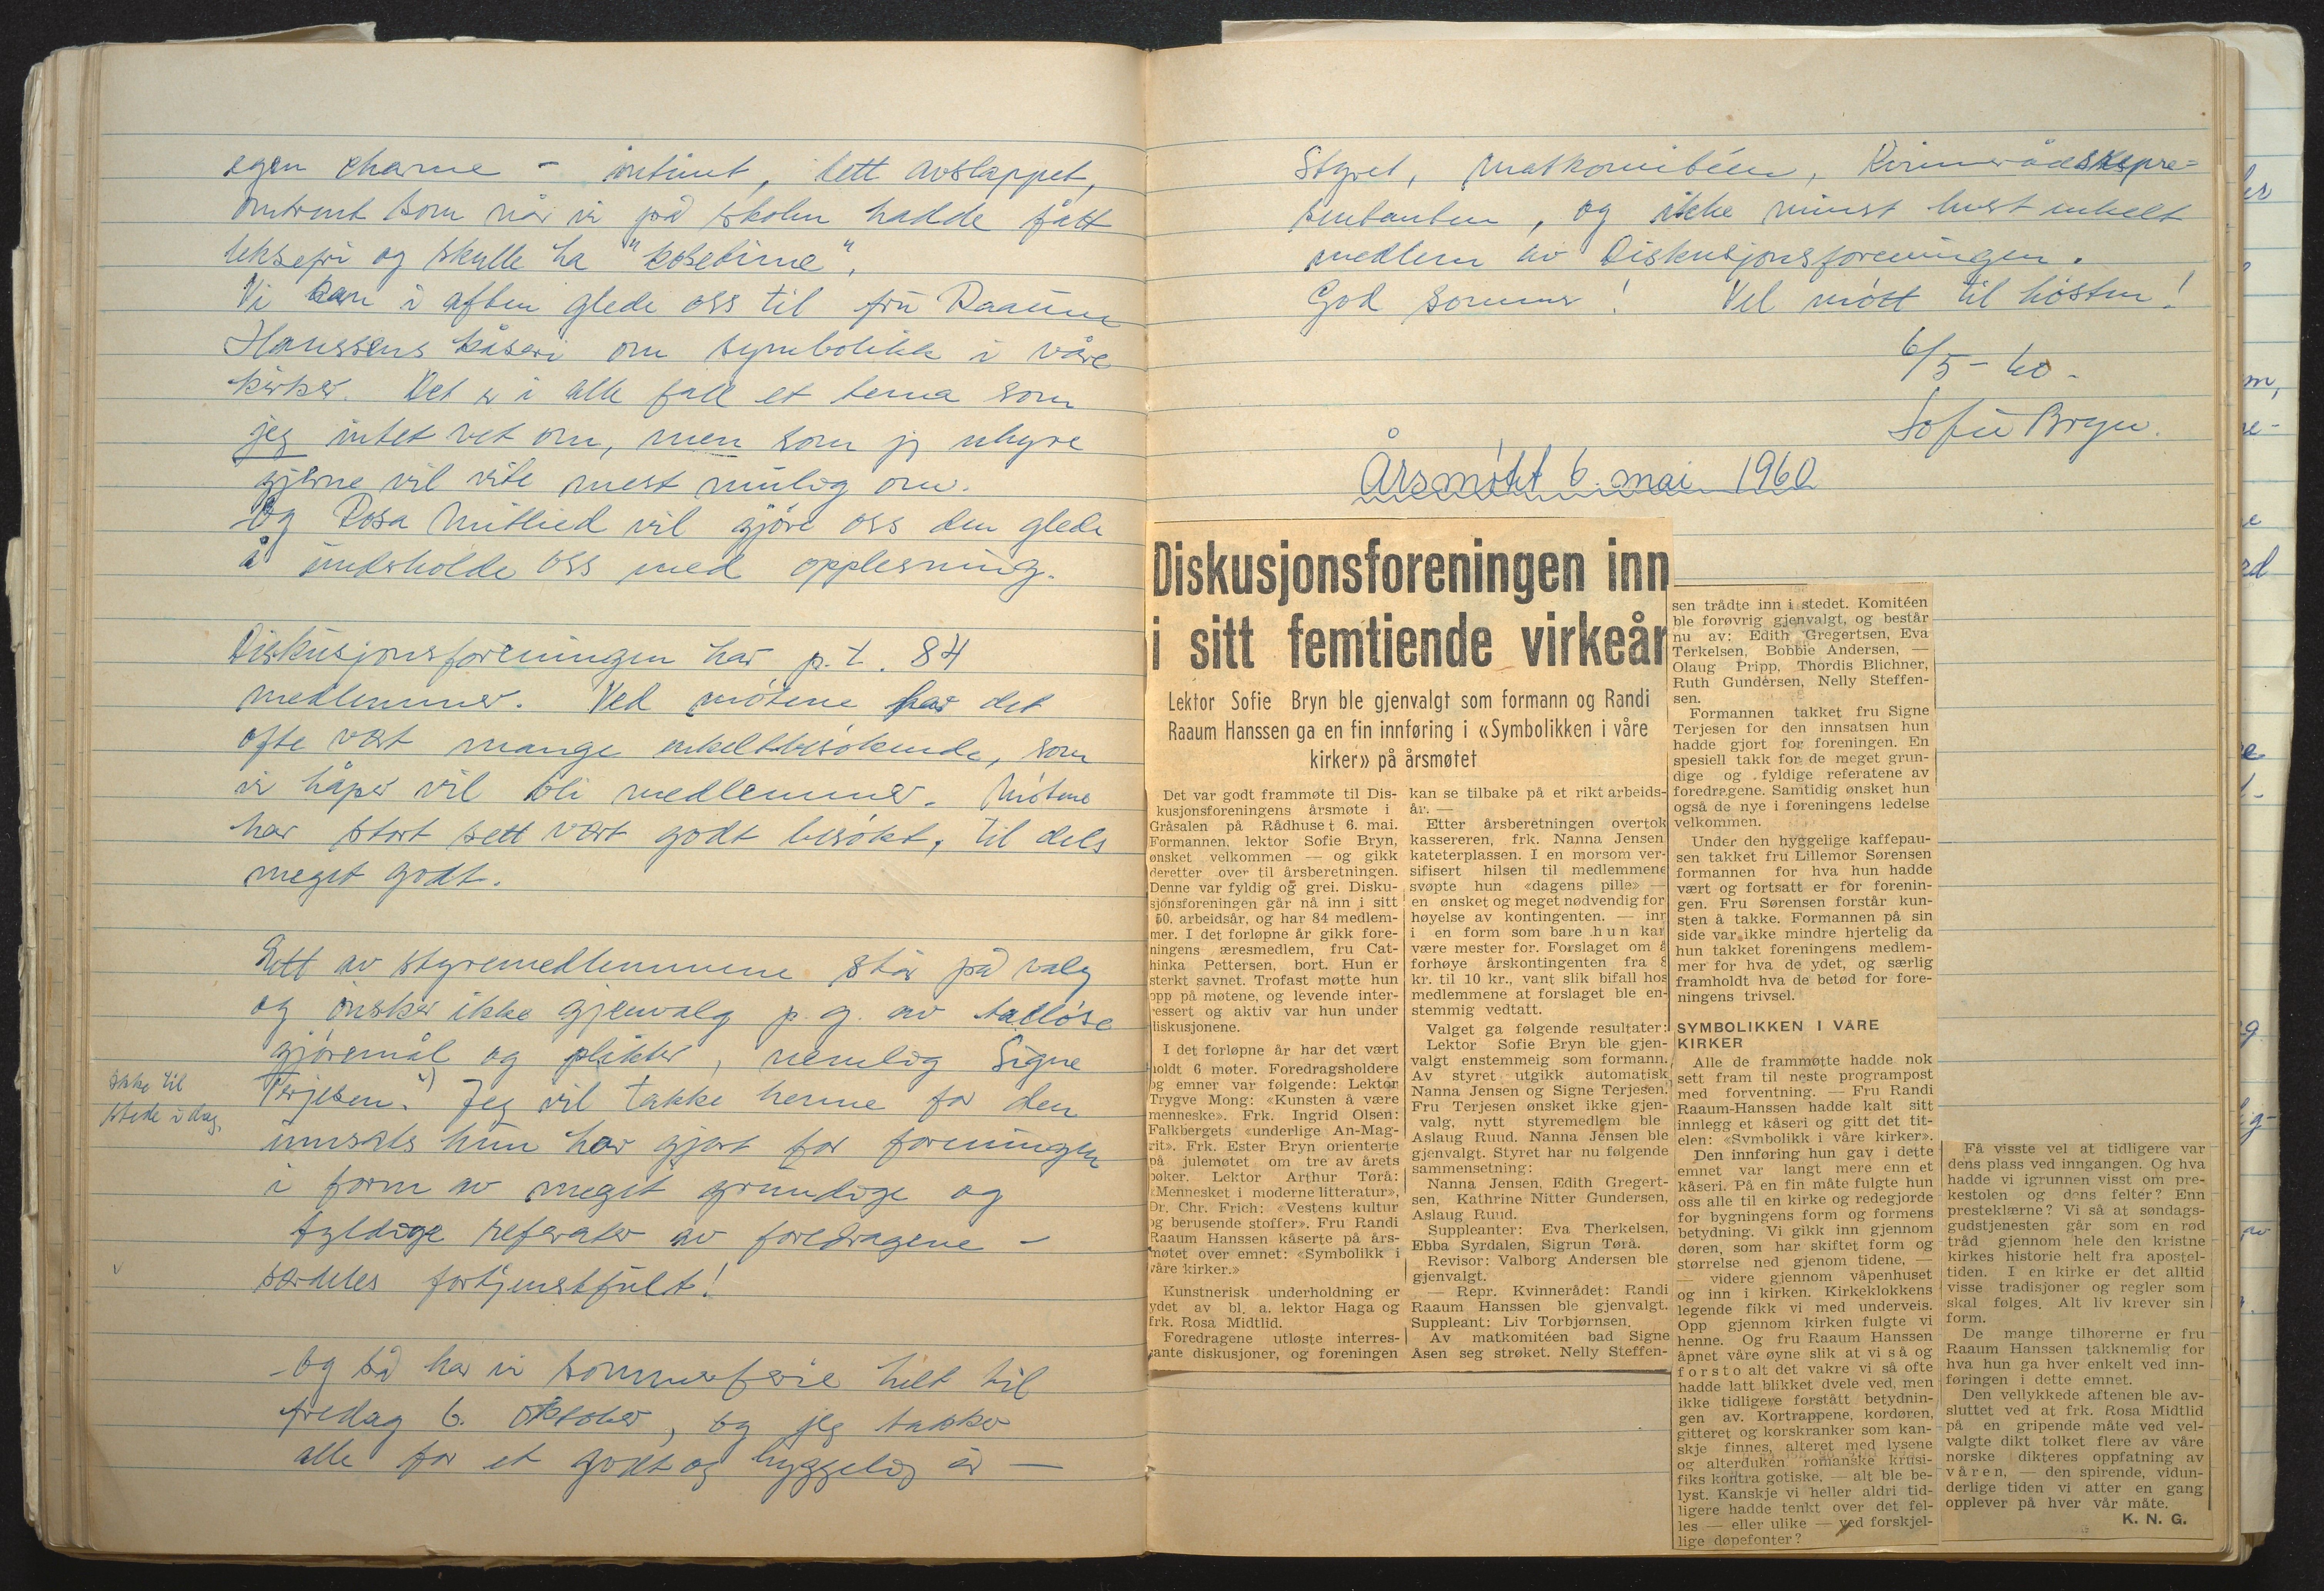 egen charme - intimt, lett avslappet,
omtrent som når vi på skolen hadde fått
leksefri og skulle ha "kosetime".
Vi kan i aften glede oss til fru Raaum
Hanssens kåseri om symbolikk i våre
kirker. Det er i alle fall et tema som
jeg intet vet om, men som jeg uhyre
gjerne vil vite mest mulig om.
Og Rosa Midtlid vil gjöre oss den glede
å underholde oss med opplesning.
Diskusjonsforeningen har p.t. 84
medlemmer. Ved mötene har det
ofte vært mange enkeltbesökende, som
vi håper vil bli medlemmer. Mötene
har stort sett vært godt besökt, til dels
meget godt.
Ett av styremedlemmene står på valg
og önsker ikke gjenvalg p.g. av talløse
gjöremål og plikter, nemlig Signe
Terjesen. Jeg vil takke henne for den
ikke til
stede i dag.
innsats hun har gjort for foreningen
i form av meget grundige og
fyldige referater av foredragene -
særdeles fortjenstfullt!
- Og så har vi sommerferie helt til
fredag 6. oktober, og jeg takker
alle for et godt og hyggelig år -
Styret, matkomitéen, Kvinnerådsrepre=
sentanten, og ikke minst hvert enkelt
medlem av Diskusjonsforeningen.
God sommer! Vel mött til hösten!
6/5 - 60.
Sofie Bryn.
Årsmötet 6. mai 1960
Diskusjonsforeningen inn
i sitt femtiende virkeår
Lektor Sofie Bryn ble gjenvalgt som formann og Randi
Raaum Hanssen ga en fin innføring i «Symbolikken i våre
kirker» på årsmøtet
Det var godt frammøte til Dis-
kusjonsforeningens årsmøte i
Gråsalen på Rådhuset 6. mai.
Formannen, lektor Sofie Bryn,
ønsket velkommen — og gikk
deretter over til årsberetningen.
Denne var fyldig og grei. Disku-
sjonsforeningen går nå inn i sitt
50. arbeidsår, og har 84 medlem-
mer. I det forløpne år gikk fore-
ningens æresmedlem, fru Cat-
hinka Pettersen, bort. Hun er
sterkt savnet. Trofast møtte hun
opp på møtene, og levende inter-
essert og aktiv var hun under
diskusjonene.
I det forløpne år har det vært
holdt 6 møter. Foredragsholdere
og emner var følgende: Lektor
Trygve Mong: «Kunsten å være
menneske». Frk. Ingrid Olsen:
Falkbergets «underlige An-Mag-
rit». Frk. Ester Bryn orienterte
på julemøtet om tre av årets
bøker. Lektor Arthur Tørå:
«Mennesket i moderne litteratur»,
Dr. Chr. Frich: «Vestens kultur
og berusende stoffer». Fru Randi
Raaum Hanssen kåserte på års-
møtet over emnet: «Symbolikk i
våre kirker.»
Kunstnerisk underholdning er
ydet av bl. a. lektor Haga og
frk. Rosa Midtlid.
Foredragene utløste interres-
sante diskusjoner, og foreningen
kan se tilbake på et rikt arbeids-
år. —
Etter årsberetningen overtok
kassereren, frk. Nanna Jensen
kateterplassen. I en morsom ver-
sifisert hilsen til medlemmene
svøpte hun «dagens pille» —
en ønsket og meget nødvendig for
høyelse av kontingenten. — inn
i en form som bare hun kan
være mester for. Forslaget om å
forhøye årskontingenten fra 8
kr. til 10 kr., vant slik bifall hos
medlemmene at forslaget ble en-
stemmig vedtatt.
Valget ga følgende resultater:
Lektor Sofie Bryn ble gjen-
valgt enstemmeig som formann.
Av styret utgikk automatisk
Nanna Jensen og Signe Terjesen.
Fru Terjesen ønsket ikke gjen-
valg, nytt styremedlem ble
Aslaug Ruud. Nanna Jensen ble
gjenvalgt. Styret har nu følgende
sammensetning:
Nanna Jensen, Edith Gregert-
sen, Kathrine Nitter Gundersen,
Aslaug Ruud.
Suppleanter: Eva Therkelsen,
Ebba Syrdalen, Sigrun Tørå.
Revisor: Valborg Andersen ble
gjenvalgt.
— Repr. Kvinnerådet: Randi
Raaum Hanssen ble gjenvalgt.
Suppleant: Liv Torbjørnsen.
Av matkomitéen bad Signe
Åsen seg strøket. Nelly Steffen-
sen trådte inn i stedet. Komitéen
ble forøvrig gjenvalgt, og består
nu av: Edith Gregertsen, Eva
Terkelsen, Bobbie Andersen, —
Olaug Pripp, Thordis Blichner,
Ruth Gundersen, Nelly Steffen-
sen.
Formannen takket fru Signe
Terjesen for den innsatsen hun
hadde gjort for foreningen. En
spesiell takk for de meget grun-
dige og fyldige referatene av
foredragene. Samtidig ønsket hun
også de nye i foreningens ledelse
velkommen.
Under den hyggelige kaffepau-
sen takket fru Lillemor Sørensen
formannen for hva hun hadde
vært og fortsatt er for forenin-
gen. Fru Sørensen forstår kun-
sten å takke. Formannen på sin
side var ikke mindre hjertelig da
hun takket foreningens medlem-
mer for hva de ydet, og særlig
framholdt hva de betød for fore-
ningens trivsel.
SYMBOLIKKEN I VÅRE
KIRKER
Alle de frammøtte hadde nok
sett fram til neste programpost
med forventning. — Fru Randi
Raaum-Hanssen hadde kalt sitt
innlegg et kåseri og gitt det tit-
elen: «Symbolikk i våre kirker».
Den innføring hun gav i dette
emnet var langt mere enn et
kåseri. På en fin måte fulgte hun
oss alle til en kirke og redegjorde
for bygningens form og formens
betydning. Vi gikk inn gjennom
døren, som har skiftet form og
størrelse ned gjenom tidene, —
— videre gjennom våpenhuset
og inn i kirken. Kirkeklokkens
legende fikk vi med underveis.
Opp gjennom kirken fulgte vi
henne. Og fru Raaum Hanssen
åpnet våre øyne slik at vi så og
forsto alt det vakre vi så ofte
hadde latt blikket dvele ved, men
ikke tidligere forstått betydnin-
gen av. Kortrappene, kordøren,
gitteret og korskranker som kan-
skje finnes, alteret med lysene
og alterduken romanske krusi-
fiks kontra gotiske, — alt ble be-
lyst. Kanskje vi heller aldri tid-
ligere hadde tenkt over det fel-
les — eller ulike — ved forskjel-
lige døpefonter?
Få visste vel at tidligere var
dens plass ved inngangen. Og hva
hadde vi igrunnen visst om pre-
kestolen og dens felter? Enn
presteklærne? Vi så at søndags-
gudstjenesten går som en rød
tråd gjennom hele den kristne
kirkes historie helt fra apostel-
tiden. I en kirke er det alltid
visse tradisjoner og regler som
skal følges. Alt liv krever sin
form.
De mange tilhørerne er fru
Raaum Hanssen takknemlig for
hva hun ga hver enkelt ved inn-
føringen i dette emnet.
Den vellykkede aftenen ble av-
sluttet ved at frk. Rosa Midtlid
på en gripende måte ved vel-
valgte dikt tolket flere av våre
norske dikteres oppfatning av
våren, — den spirende, vidun-
derlige tiden vi atter en gang
opplever på hver vår måte.
K. N. G.